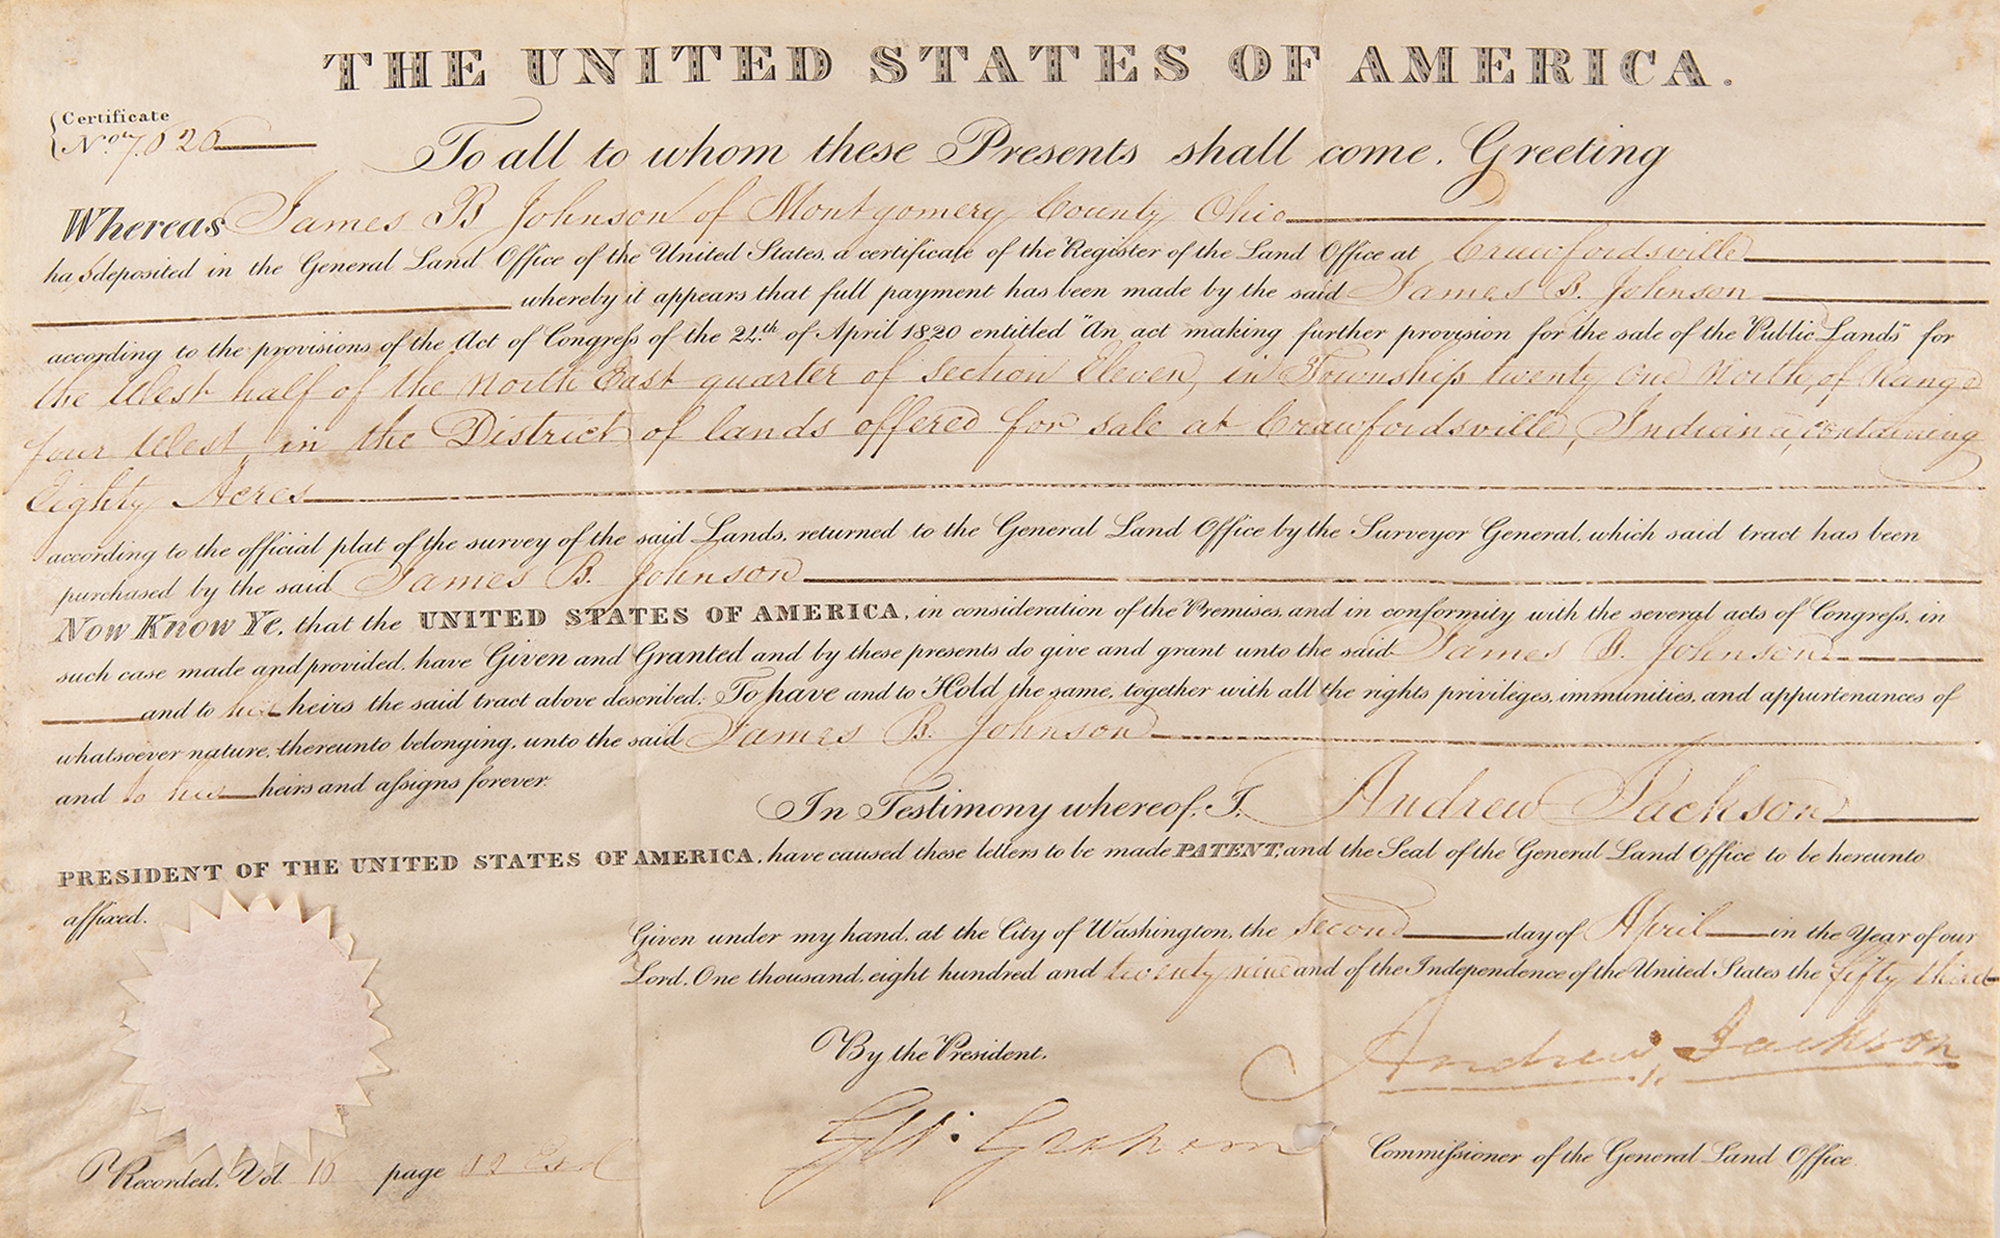 THE UNITED STATES OF AMERICA.
Certificate
No. 7.620
To all to whom these Presents shall come, Greeting
Whereas James B Johnson of Montgomery County Ohio
has deposited in the General Land Office of the United States, a certificate of the Register of the Land Office at Crawfordsville
whereby it appears that full payment has been made by the said James B. Johnson
according to the provisions of the Act of Congress of the 24th. of April 1820 entitled "An act making further provision for the sale of the Public Lands" for
the West half of the North East quarter of Section Eleven, in Township twenty one North, of Range
four West, in the District of lands offered for sale at Crawfordsville, Indiana, containing
Eighty Acres
according to the official plat of the survey of the said Lands, returned to the General Land Office by the Surveyor General, which said tract has been
purchased by the said James B. Johnson
Now Know Ye, that the UNITED STATES OF AMERICA, in consideration of the Premises, and in conformity with the several acts of Congress, in
such case made and provided, have Given and Granted and by these presents do give and grant unto the said James B. Johnson
and to his heirs the said tract above described: To have and to Hold the same, together with all the rights privileges, immunities, and appurtenances of
whatsoever nature, thereunto belonging, unto the said James B. Johnson
and to his heirs and assigns forever.
In Testimony whereof, I, Andrew Jackson
PRESIDENT OF THE UNITED STATES OF AMERICA, have caused these letters to be made PATENT, and the Seal of the General Land Office to be hereunto
affixed.
Given under my hand, at the City of Washington, the second day of April in the Year of our
Lord, One thousand, eight hundred and twenty nine and of the Independence of the United States the fifty third
Andrew Jackson
By the President.
G.W. Graham Commissioner of the General Land Office
Recorded, Vol 16 page